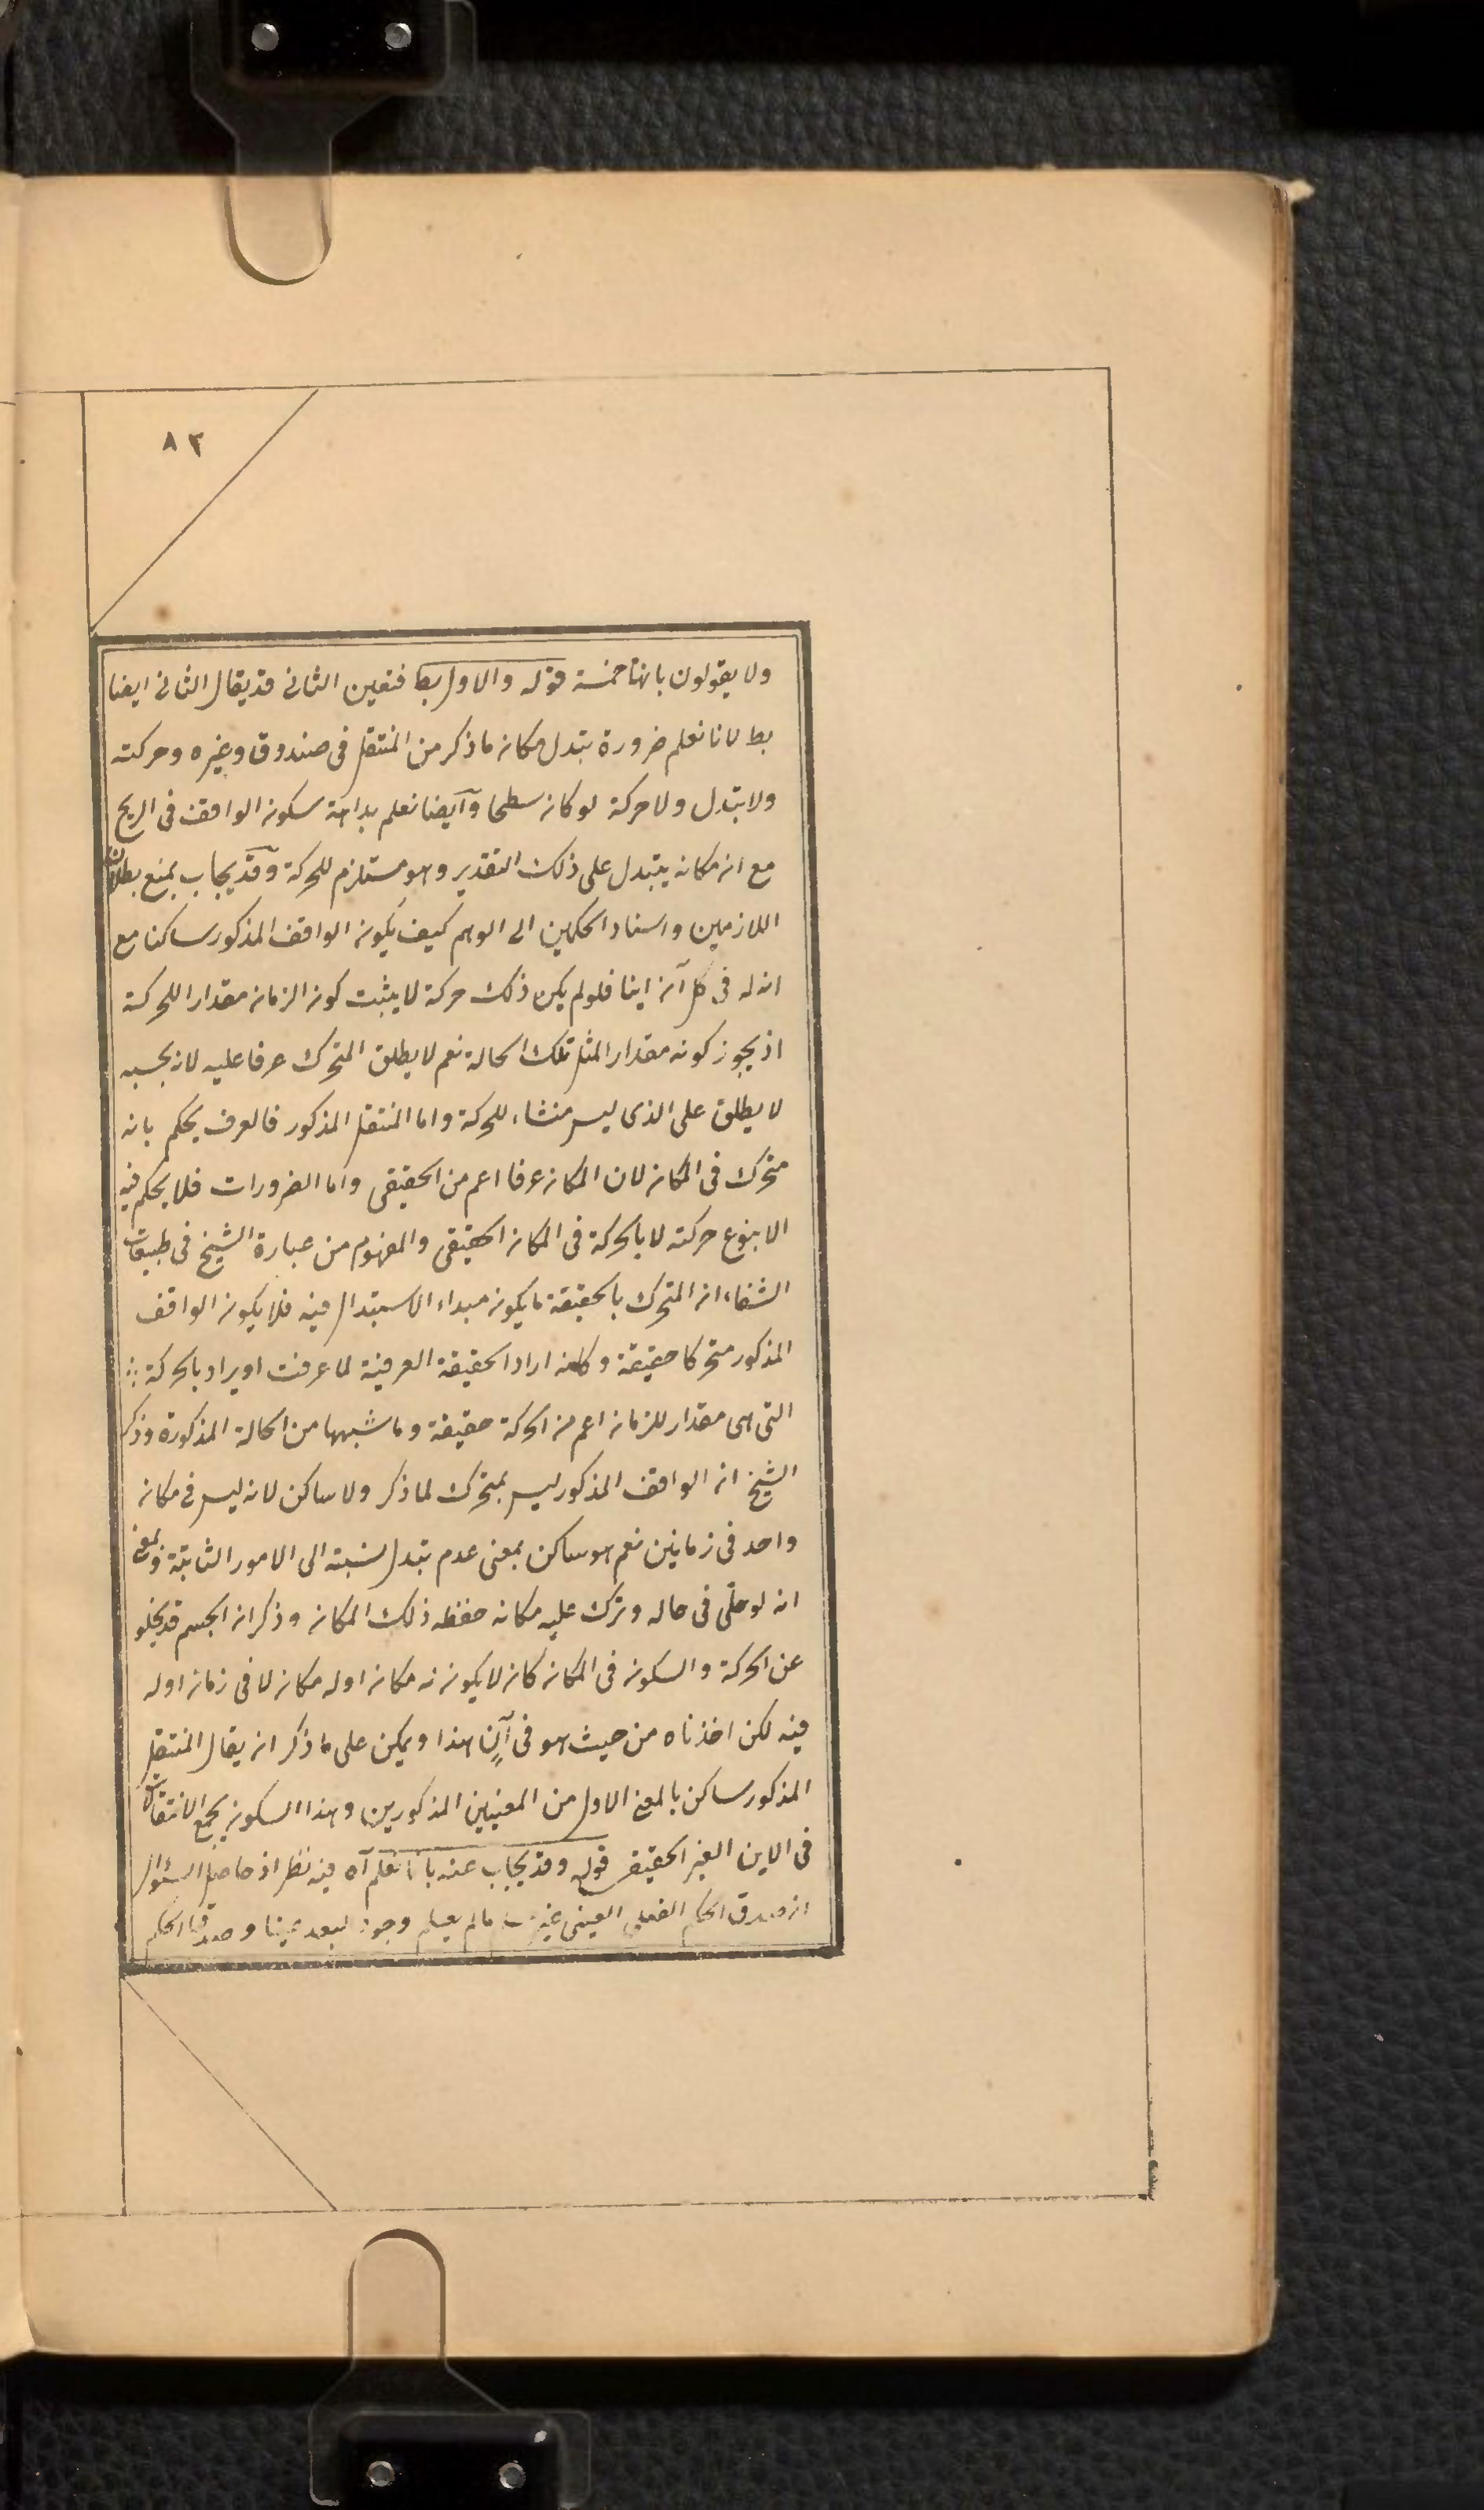 ٨٢
ولا يقولون بانها خمسة قوله والاول بط فتعين الثانى قد يقال الثانى ايضا
بط لانا نعلم ضرورة تبدل مكان ما ذكر من المنتقل فى صندوق وغيره وحركته
ولا تبدل ولا حركة لو كان سطحا وايضا نعلم بداهة سكون الواقف فى الريح
مع ان مكانه يتبدل على ذلك التقدير وهو مستلزم للحركة وقد يجاب بمنع بطلان
اللازمين واسناد الحكمين الى الوهم كيف يكون الواقف المذكور ساكنا مع
ان له فى كل آن اينا فلو لم يكن ذلك حركة لا يثبت كون الزمان مقدارا للحركة
اذ يجوز كونه مقدارا لمثل تلك الحالة نعم لا يطلق المتحرك عرفا عليه لانه بحسبه
لا يطلق على الذى ليس منشاء للحركة واما المنتقل المذكور فالعرف يحكم بانه
متحرك فى المكان لان المكان عرفا اعم من الحقيقى واما الضرورات فلا يحكم فيه
الا بنوع حركته لا بالحركة فى المكان الحقيقى والمفهوم من عبارة الشيخ فى طبيعيات
الشفاء ان المتحرك بالحقيقة ما يكون مبداء الاستبدال فيه فلا يكون الواقف
المذكور متحركا حقيقة وكانه اراد الحقيقة العرفية لما عرفت او يراد بالحركة
التى هى مقدار للزمان اعم من الحركة حقيقة وما شبهها من الحالة المذكورة وذكر
الشيخ ان الواقف المذكور ليس بمتحرك لما ذكر ولا ساكن لانه ليس فى مكان
واحد فى زمانين نعم هو ساكن بمعنى عدم تبدل نسبته الى الامور الثابتة وبمعنى
انه لو خلى فى حاله وترك عليه مكانه حفظه ذلك المكان وذكر ان الجسم قد يخلو
عن الحركة والسكون فى المكان كان لا يكون له مكان او له مكان لا فى زمان او له
فيه لكن اخذناه من حيث هو فى آن هذا ويمكن على ما ذكر ان يقال المنتقل
المذكور ساكن بالمعنى الاول من المعنيين المذكورين وهذا السكون يجمع الانتقال
فى الاين الغير الحقيقى قوله وقد يجاب عنه بانا نعلم آه فيه نظر اذ حاصل السئوال
ان صدق الحكم الفعلى العينى غير ما لم يعلم وجود لبعد عينا وصدق الحكم